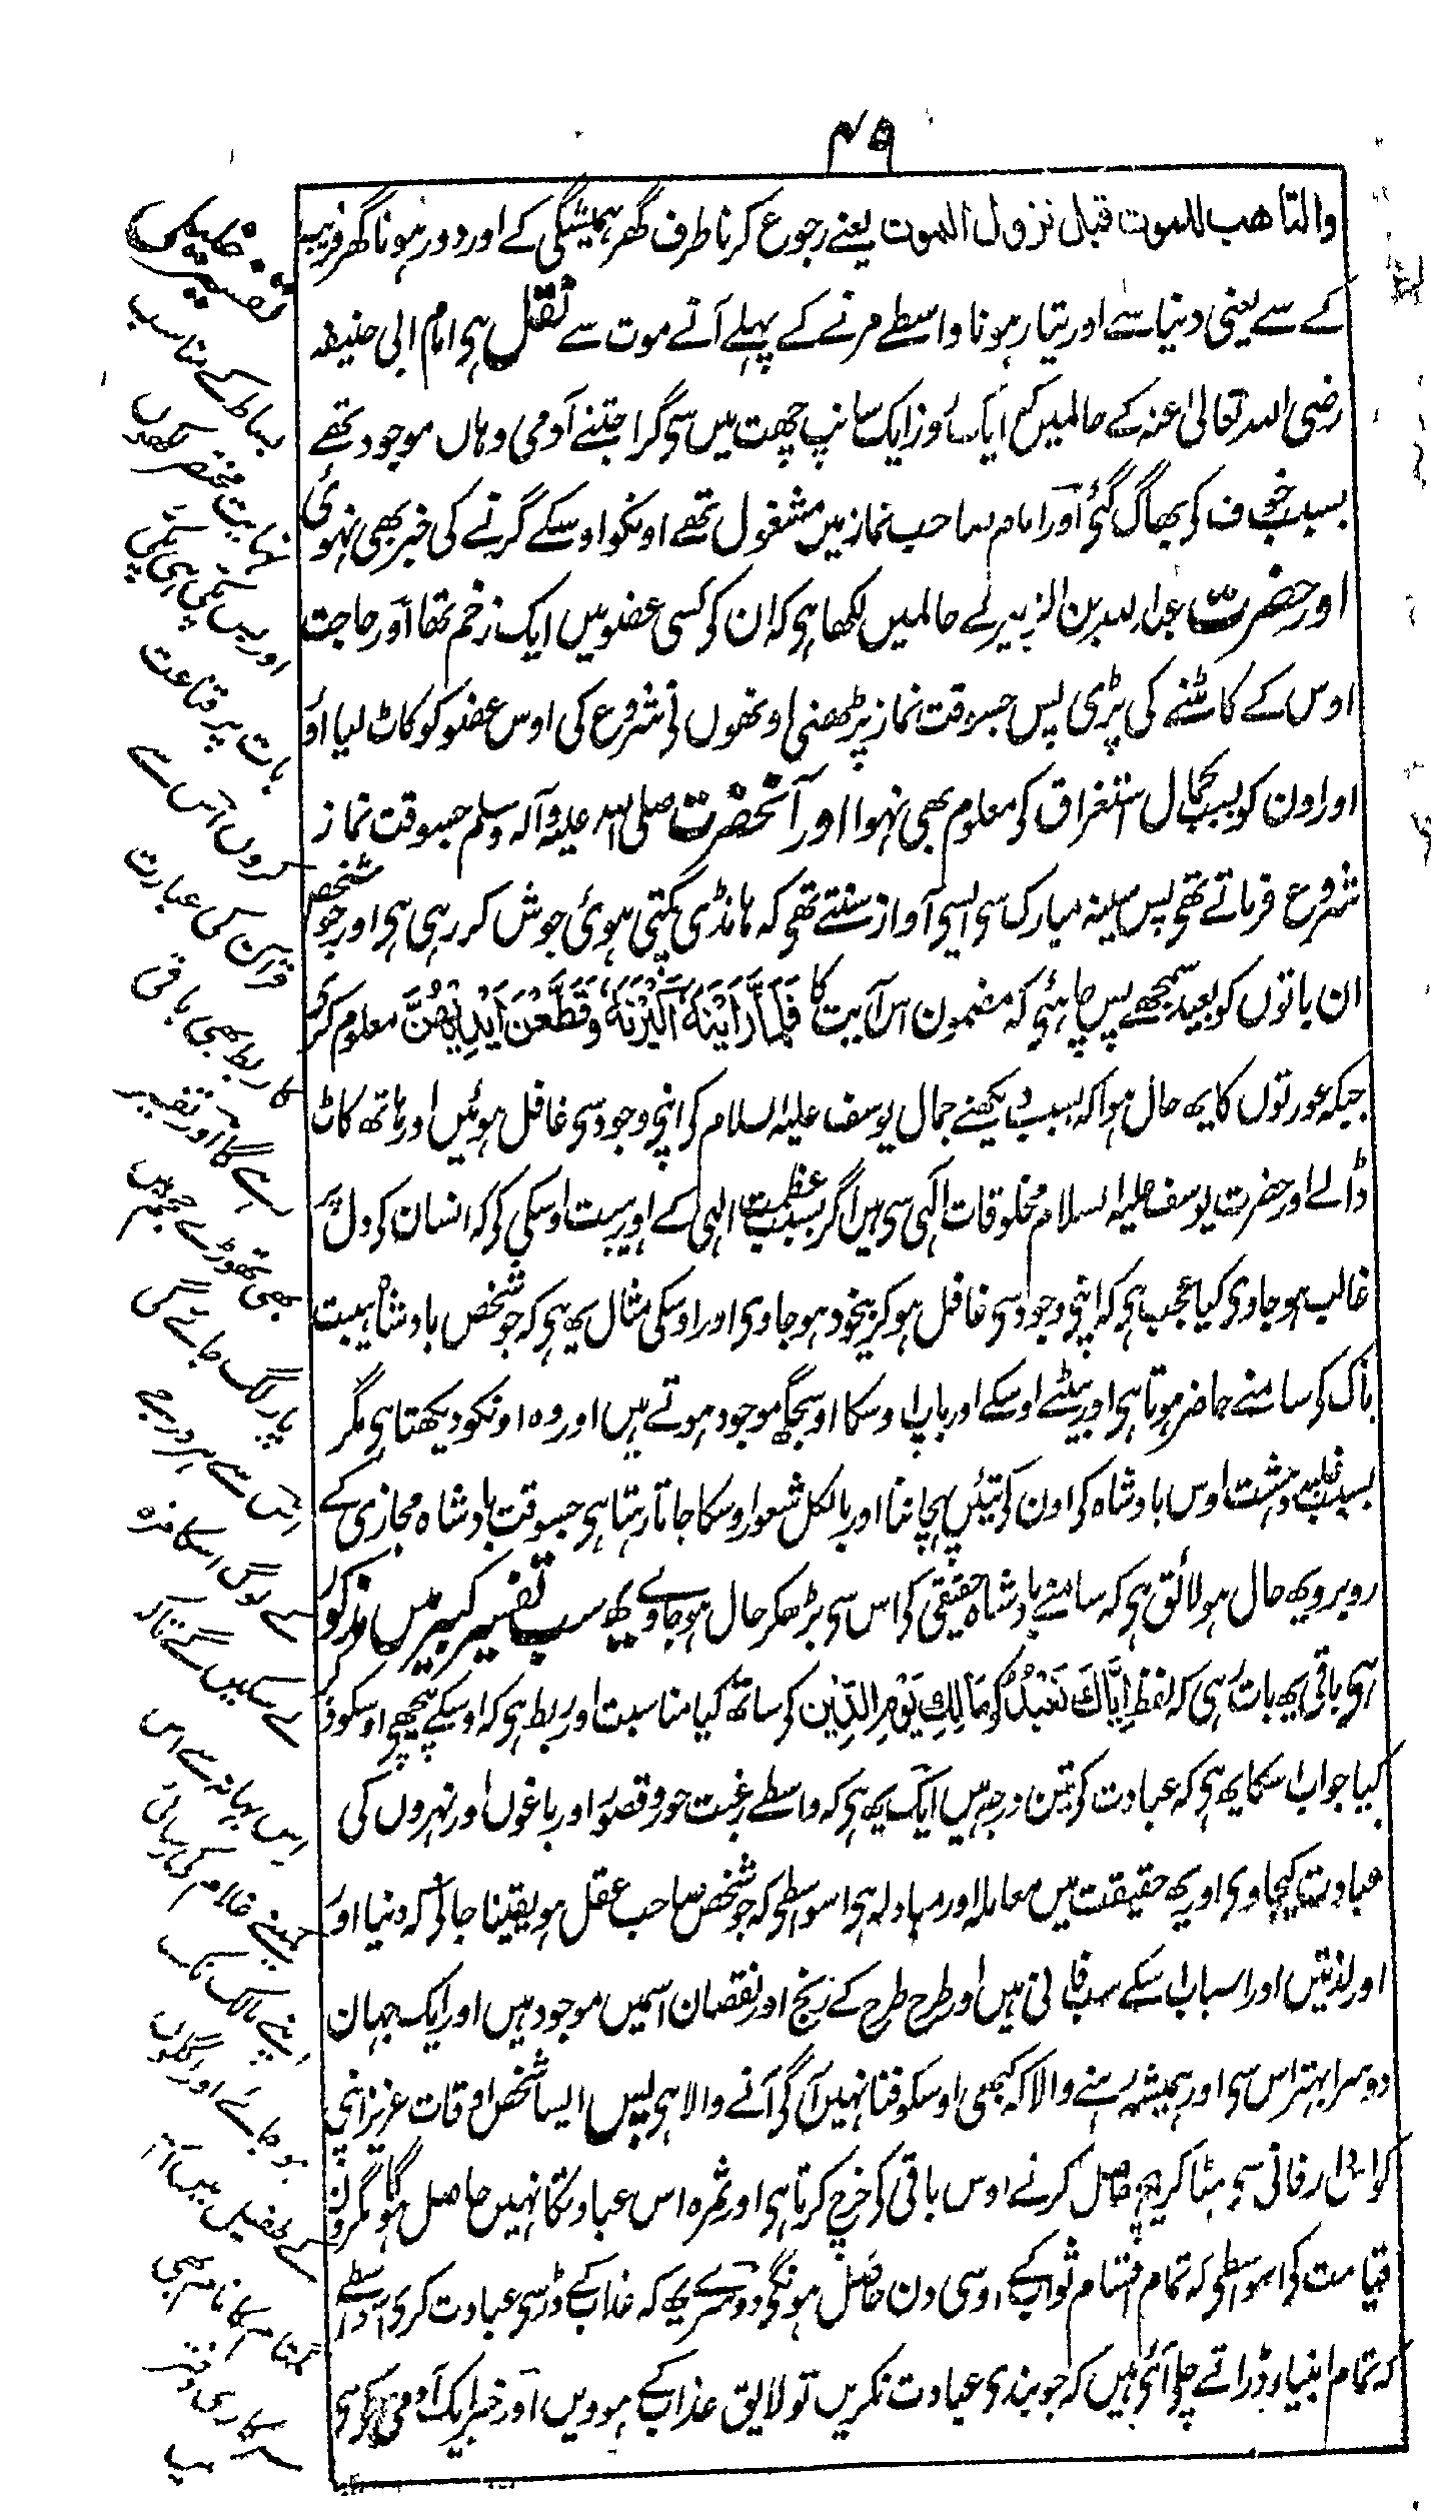 ۴۹
والتأهب للموت قبل نزول الموت یعنے رجوع کرنا طرف گھر ہمیشگی کے اور دور ہونا گھر فریب
کے سے یعنی دنیا سے اور تیار ہونا واسطے مرنے کے پہلے آنے موت سے نقل ہی امام ابی حنیفہ
رضی اللہ تعالیٰ عنہ کے حالمیں کہ ایک روز ایک سانپ چھت میں سی گرا جتنے آدمی وہاں موجود تھے
بسبب خوف کی بھاگ گئی اور امام صاحب نماز میں مشغول تھے اونکو اوسکے گرنے کی خبر بھی نہوئی
اور حضرت عبد اللہ بن الزبیر کے حالمیں لکھا ہی کہ ان کی کسی عضو میں ایک زخم تھا اور حاجت
اوس کے کاٹنے کی پڑی پس جسوقت نماز پڑھنی اونھوں نی شروع کی اوس عضو کو کاٹ لیا او
اور اون کو بسبب کمال استغراق کی معلوم بھی نہوا اور آنحضرت صلی اللہ علیہ وآلہ وسلم جسوقت نماز
شروع فرماتے تھی پس سینہ مبارک سی ایسی آواز سنتے تھی کہ ہانڈی پکتی ہوئی جوش کر رہی ہی اور جو شخص
ان باتوں کو بعید سمجھے پس چاہئی کہ مضمون اس آیت کا فَلَمَّا رَأَيْنَهُ أَكْبَرْنَهُ وَقَطَّعْنَ أَيْدِيَهُنَّ معلوم کری
جبکہ عورتوں کا یہ حال ہوا کہ بسبب دیکھنے جمال یوسف علیہ السلام کی اپنی وجود سی غافل ہوئیں اور ہاتھ کاٹ
ڈالے اور حضرت یوسف علیہ السلام مخلوقات الٰہی سی ہیں اگر بسبب عظمت الٰہی کے اور ہیبت اوسکی کی کہ انسان کی دل پر
غالب ہو جاوی کیا عجب ہی کہ اپنی وجود سی غافل ہو کر بیخود ہو جاوی اور اوسکی مثال یہ ہی کہ جو شخص بادشاہ ہیبت
ناک کی سامنے حاضر ہوتا ہی اور بیٹے اوسکے اور باپ اوسکا اوسجگہ موجود ہوتے ہیں اور وہ اونکو دیکھتا ہی مگر
بسبب غلبہ دہشت اوس بادشاہ کی اون کی تئیں پہچاننا اور بالکل شعور اوسکا جاتا رہتا ہی جسوقت بادشاہ مجازی کے
روبرو یہ حال ہو لائق ہی کہ سامنے بادشاہ حقیقی کی اس سی بڑھکر حال ہو جاوے یہ سب تفسیر کبیر میں مذکور
ہی باقی یہ بات رہی کہ لفظ إِيَّاكَ نَعْبُدُ کو مَالِكِ يَوْمِ الدِّيْن کی ساتھ کیا مناسبت اور ربط ہی کہ اوسکے پیچھی اوسکو ذکر
کیا جواب اسکا یہ ہی کہ عبادت کی تین درجہ ہیں ایک یہ ہی کہ واسطے رغبت حور و قصور اور باغوں اور نہروں کی
عبادت کیجاوی اور یہ حقیقت میں معاملہ اور مبادلہ ہی اسواسطی کہ جو شخص صاحب عقل ہو یقینا جانی کہ دنیا اور
اور لذتیں اور اسباب اسکے سب فانی ہیں اور طرح طرح کے رنج اور نقصان اسمیں موجود ہیں اور ایک جہان
دوسرا بہتر اس سی اور ہمیشہ رہنے والا کہ کبھی اوسکو فنا نہیں آگی آنے والا ہی پس ایسا شخص اوقات عزیز اپنی
کو اس دار فانی سی ہٹا کر بیچ حاصل کرنے اوس باقی کی خرچ کرتا ہی اور ثمرہ اس عبادتکا نہیں حاصل ہو گا مگر روز
قیامت کی اسواسطی کہ تمام اقسام ثواب کے اوسی دن حاصل ہونگی دوسرے یہ کہ عذاب کے ڈر سی عبادت کری اسواسطے
کہ تمام انبیا ڈراتے چلے آئی ہیں کہ جو بندی عبادت نکریں تو لایق عذاب کے ہوویں اور خبر ایک آدمی
بساط کے مناسب
نہایت مختصر لکھوں
اور بس
بات پر قناعت
کروں اس سے
قرآن کی عبارت
کا ربط بھی باقی
رہے گا اور تفسیر
بھی تھوڑے حجم میں
پار لگ جائے گی
لوگ اسکا مزہ
لے سکیں گے تاکہ
اس بہانہ سے اس
کمینے غلام کی رسائی
اپنے مالک تک
ہو جائے اور لکھوں
کے طفیل میں
گمنام کا نام بھی
سرکاری دفتر